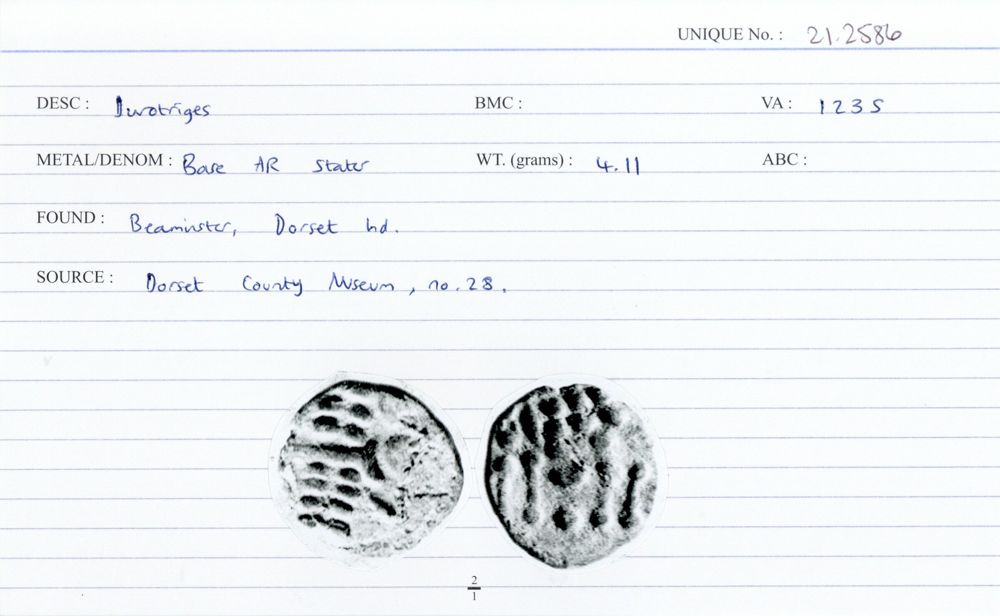 UNIQUE No. : 21.2586
DESC : Durotriges BMC : VA : 1235
METAL/DENOM : Base AR Stater WT. (grams) : 4.11 ABC :
FOUND : Beaminster, Dorset hd.
SOURCE : Dorset County Museum, no. 28.
2
1